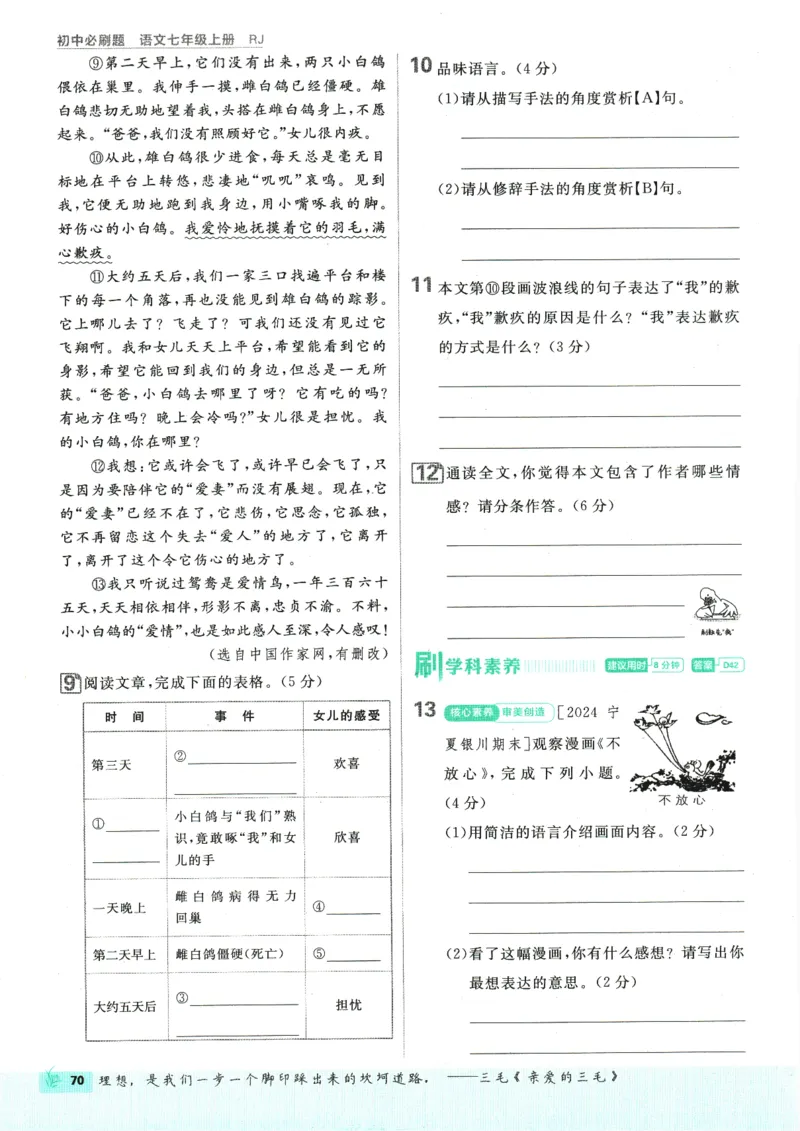 初中必刷题 语文七年级上册 RJ
⑨第二天早上,它们没有出来,两只小白鸽
偎依在巢里。我伸手一摸,雌白鸽已经僵硬。雄
白鸽悲切无助地望着我,头搭在雌白鸽身上,不愿
起来。“爸爸,我们没有照顾好它。”女儿很内疚。
⑩从此,雄白鸽很少进食,每天总是毫无目
标地在平台上转悠,悲凄地“呱呱”哀鸣。见到
我,它便无助地跑到我身边,用小嘴啄我的脚。
好伤心的小白鸽。我爱怜地抚摸着它的羽毛,满
心歉疚。
⑪大约五天后,我们一家三口找遍平台和楼
下的每一个角落,再也没能见到雄白鸽的踪影。
它上哪儿去了?飞走了?可我们还没有见过它
飞翔啊。我和女儿天天上平台,希望能看到它的
身影,希望它能回到我们的身边,但总是一无所
获。“爸爸,小白鸽去哪里了呀?它有吃的吗?
有地方住吗?晚上会冷吗?”女儿很是担忧。我
的小白鸽,你在哪里?
⑫我想:它或许会飞了,或许早已会飞了,只
是因为要陪伴它的“爱妻”而没有展翅。现在,它
的“爱妻”已经不在了,它悲伤,它思念,它孤独,
它不再留恋这个失去“爱人”的地方了,它离开
了,离开了这个令它伤心的地方了。
⑬我只听说过鸳鸯是爱情鸟,一年三百六十
五天,天天相依相伴,形影不离,忠贞不渝。不料,
小小白鸽的“爱情”,也是如此感人至深,令人感叹!
(选自中国作家网,有删改)
9 阅读文章,完成下面的表格。(5分)
时 间 事 件 女儿的感受
第三天 ② 欢喜
① 小白鸽与“我们”熟
识,竟敢啄“我”和女 欣喜
儿的手
一天晚上 雌白鸽病得无力 ④
回巢
第二天早上 雌白鸽僵硬(死亡) ⑤
大约五天后 ③ 担忧
10 品味语言。(4分)
(1)请从描写手法的角度赏析【A】句。
(2)请从修辞手法的角度赏析【B】句。
11 本文第⑩段画波浪线的句子表达了“我”的歉
疚,“我”歉疚的原因是什么?“我”表达歉疚
的方式是什么?(3分)
12 通读全文,你觉得本文包含了作者哪些情
感?请分条作答。(6分)
刷学科素养 建议用时 8分钟 答案 D42
13 核心素养 审美创造 [2024宁
夏银川期末]观察漫画《不
放心》,完成下列小题。
(4分)
不放心
(1)用简洁的语言介绍画面内容。(2分)
(2)看了这幅漫画,你有什么感想?请写出你
最想表达的意思。(2分)
70 理想，是我们一步一个脚印踩出来的坎坷道路。 ——三毛《亲爱的三毛》